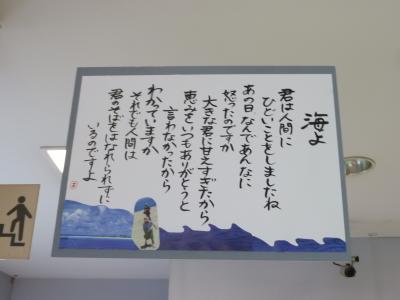 海よ
君は人間に
ひどいことをしましたね
あの日なんであんなに
怒ったのですか
大きな君に甘えすぎたから
恵みをいつもありがとうと
言わなかったから
わかっていますか
それでも人間は
君のそばをはなれられずに
いるのですよ